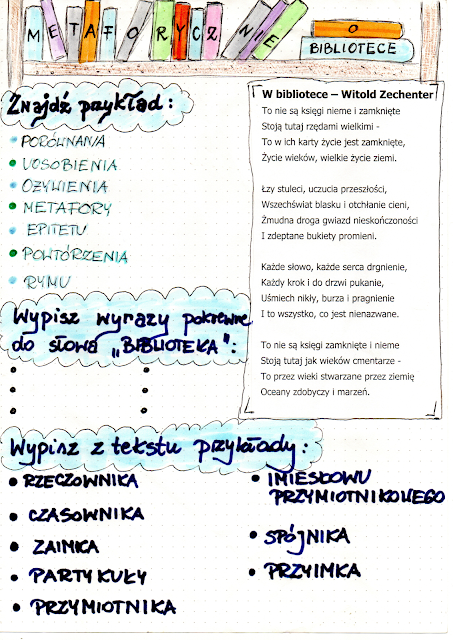 METAFORYCZNIE
O
BIBLIOTECE
Znajdź przykład:
PORÓWNANIA
UOSOBIENIA
OŻYWIENIA
METAFORY
EPITETU
POWTÓRZENIA
RYMU
W bibliotece – Witold Zechenter
To nie są księgi nieme i zamknięte
Stoją tutaj rzędami wielkimi -
To w ich karty życie jest zamknięte,
Życie wieków, wielkie życie ziemi.
Łzy stuleci, uczucia przeszłości,
Wszechświat blasku i otchłanie cieni,
Żmudna droga gwiazd nieskończoności
I zdeptane bukiety promieni.
Każde słowo, każde serca drgnienie,
Każdy krok i do drzwi pukanie,
Uśmiech nikły, burza i pragnienie
I to wszystko, co jest nienazwane.
To nie są księgi zamknięte i nieme
Stoją tutaj jak wieków cmentarze -
To przez wieki stwarzane przez ziemię
Oceany zdobyczy i marzeń.
Wypisz wyrazy pokrewne
do słowa „BIBLIOTEKA":
Wypisz z tekstu przykłady:
RZECZOWNIKA
CZASOWNIKA
ZAIMKA
PARTYKUŁY
PRZYMIOTNIKA
IMIESŁOWU
PRZYMIOTNIKOWEGO
SPÓJNIKA
PRZYIMKA